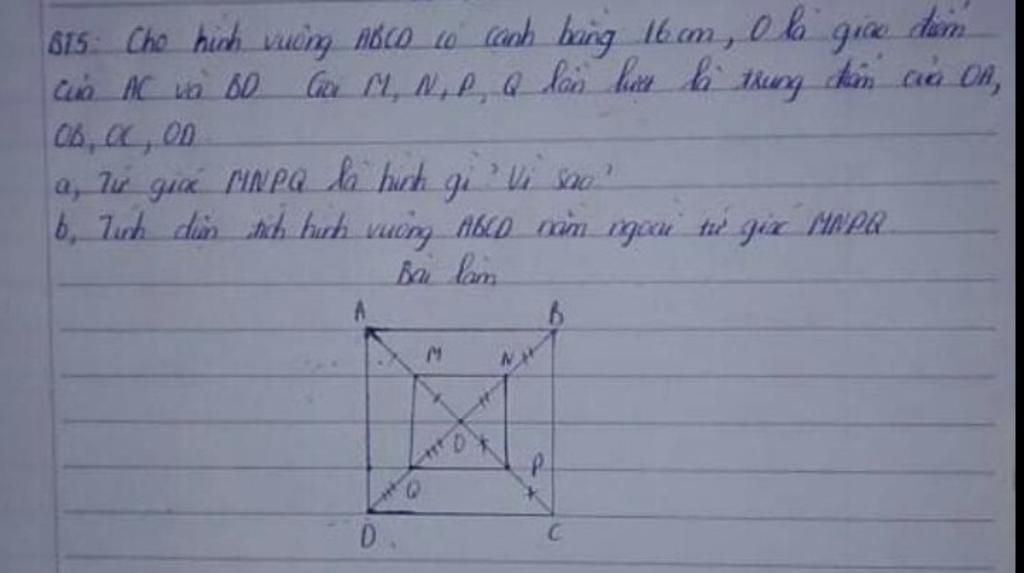 BT5: Cho hình vuông ABCD có cạnh bằng 16cm, O là giao điểm
của AC và BD Gọi M, N, P, Q lần lượt là trung điểm của OA,
OB, OC, OD
a, Tứ giác MNPQ là hình gì? Vì sao?
b, Tính diện tích hình vuông ABCD nằm ngoài tứ giác MNPQ.
Bài làm
A B
M N
O
Q P
D C